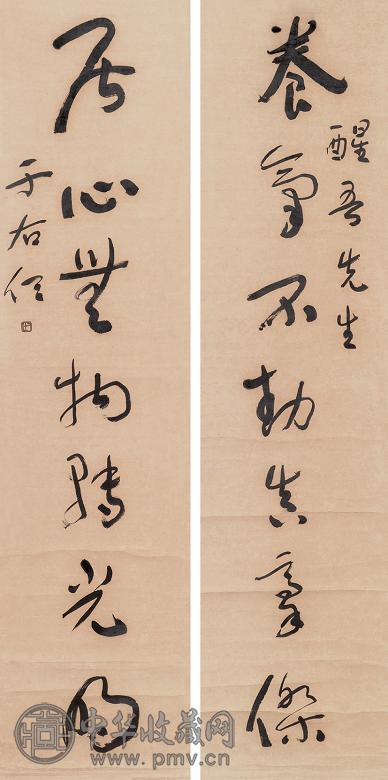 養氣不動真豪傑
醒吾先生
居心無物轉光明
于右任
中华收藏网
www.pmv.cn